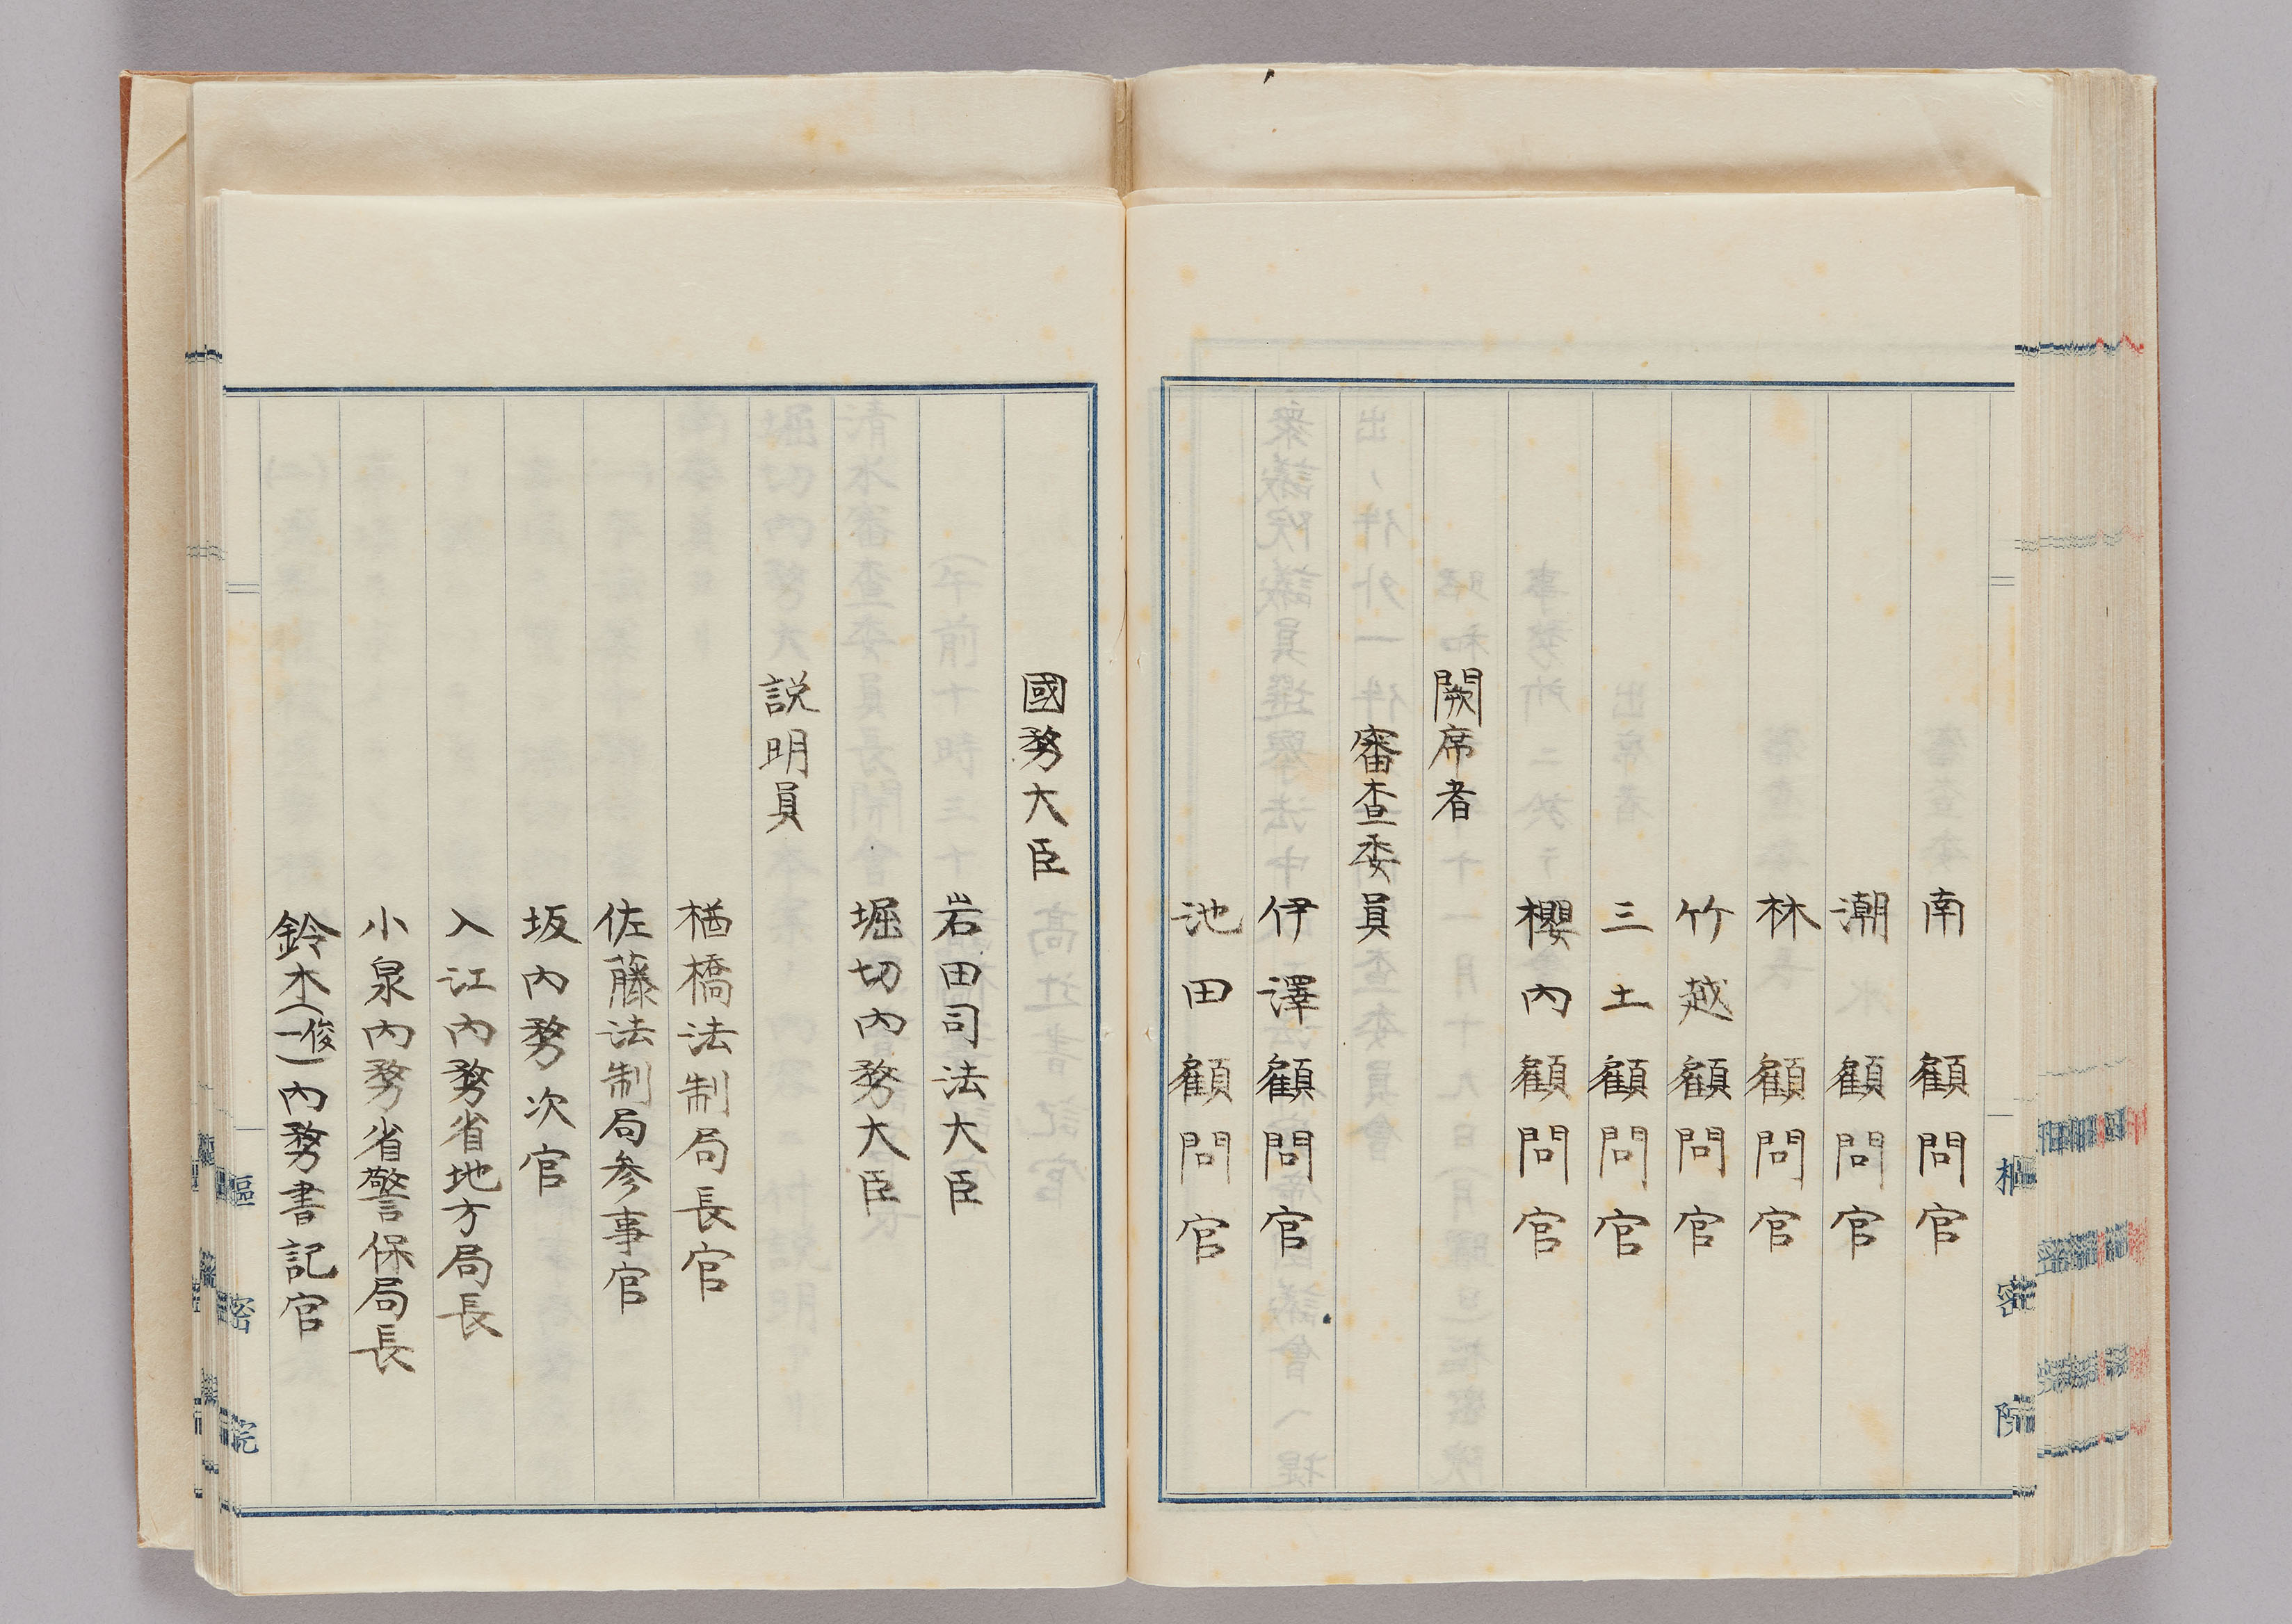 南顧問官
潮顧問官
林顧問官
竹越顧問官
三土顧問官
櫻内顧問官
闕席者
審査委員
伊澤顧問官
池田顧問官
國務大臣
岩田司法大臣
堀切内務大臣
説明員
楢橋法制局長官
佐藤法制局参事官
坂内務次官
入江内務省地方局長
小泉内務省警保局長
鈴木(俊一)内務書記官
樞密院